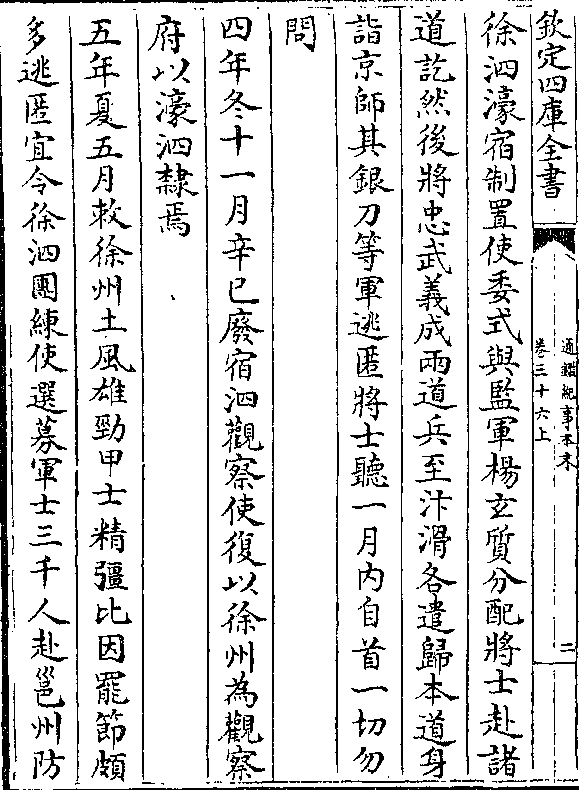 欽定四庫全書
通鑑紀事本末
卷三十六上
二
徐泗濠宿制置使委式與監軍楊玄質分配將士赴諸
道訖然後將忠武義成兩道兵至汴滑各遣歸本道身
詣京師其銀刀等軍逃匿將士聽一月内自首一切勿
問
四年冬十一月辛巳廢宿泗觀察使復以徐州為觀察
府以濠泗隸焉
五年夏五月敕徐州土風雄勁甲士精彊比因罷節頗
多逃匿宜令徐泗團練使選募軍士三千人赴邕州防